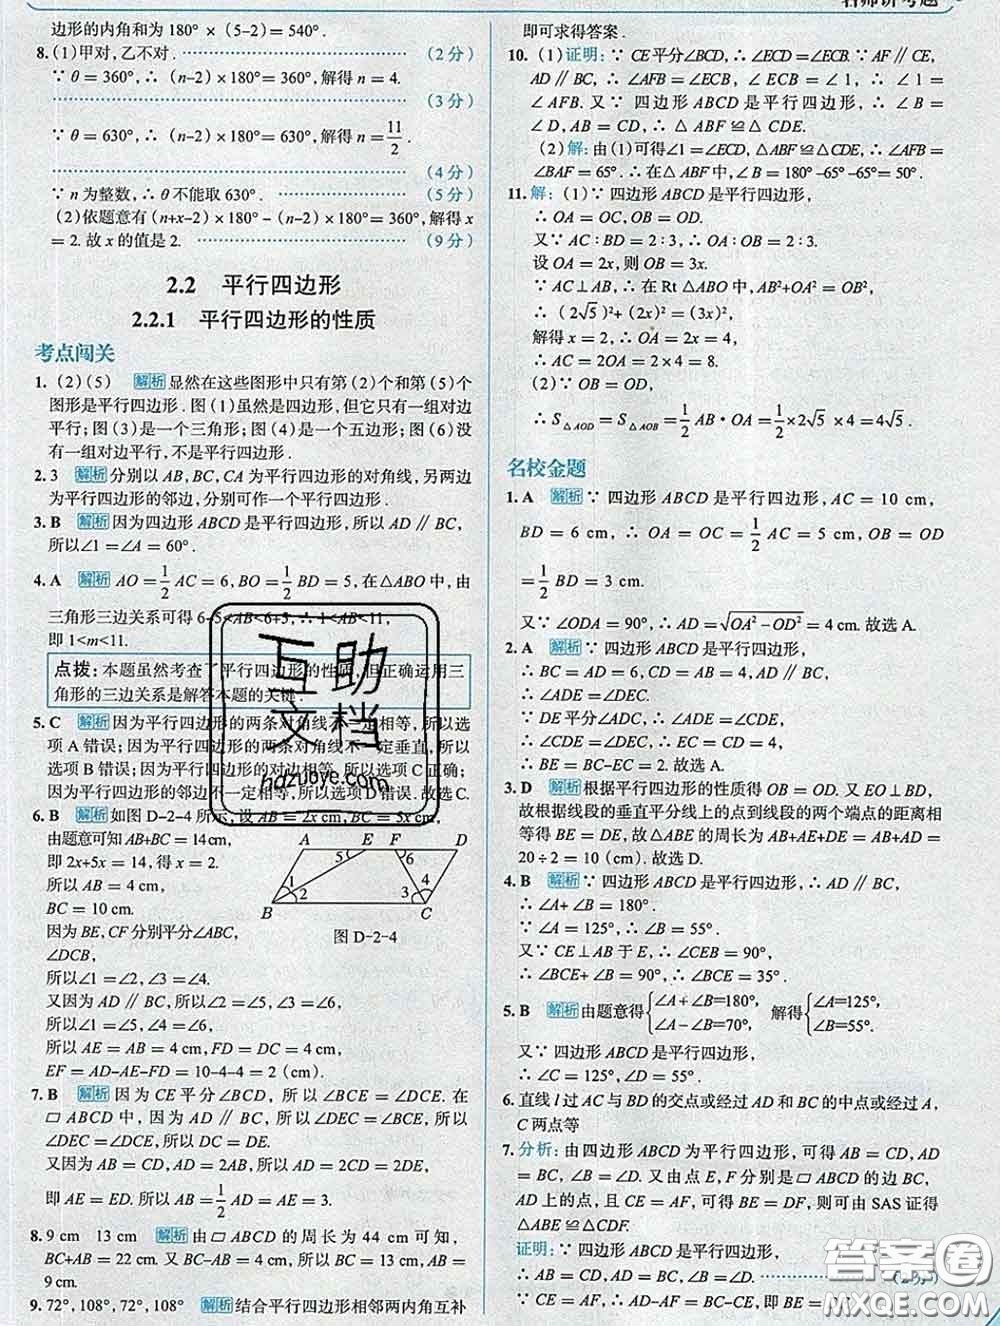 边形的内角和为180°×(5-2)=540°.
8.(1)甲对,乙不对. (2分)
∵θ=360°,∴(n-2)×180°=360°,解得n=4.
(3分)
∵θ=630°,∴(n-2)×180°=630°,解得n=11/2.
(4分)
∵n为整数,∴θ不能取630°. (5分)
(2)依题意有(n+x-2)×180°-(n-2)×180°=360°,解得x
=2.故x的值是2. (9分)
2.2 平行四边形
2.2.1 平行四边形的性质
考点闯关
1.(2)(5) 解析 显然在这些图形中只有第(2)个和第(5)个
图形是平行四边形.图(1)虽然是四边形,但它只有一组对边
平行;图(3)是一个三角形;图(4)是一个五边形;图(6)没
有一组对边平行,不是平行四边形.
2.3 解析 分别以AB,BC,CA为平行四边形的对角线,另两边
为平行四边形的邻边,分别可作一个平行四边形.
3.B 解析 因为四边形ABCD是平行四边形,所以AD∥BC,
所以∠1=∠A=60°.
4.A 解析 AO=1/2AC=6,BO=1/2BD=5,在△ABO中,由
三角形三边关系可得6-5<AB<6+5,∴1<AB<11,
即1<m<11.
点拨:本题虽然考查了平行四边形的性质,但正确运用三
角形的三边关系是解答本题的关键.
5.C 解析 因为平行四边形的两条对角线不一定相等,所以选
项A错误;因为平行四边形的两条对角线不一定垂直,所以
选项B错误;因为平行四边形的对边相等,所以选项C正确;
因为平行四边形的邻边不一定相等,所以选项D错误.故选C.
6.B 解析 如图D-2-4所示,设AB=2x cm,BC=5x cm,
由题意可知AB+BC=14cm,
即2x+5x=14,得x=2.
所以AB=4 cm,
BC=10 cm.
因为BE,CF分别平分∠ABC,
∠DCB,
A E F D
5 6
1 2 3 4
B C
图D-2-4
所以∠1=∠2,∠3=∠4.
又因为AD∥BC,所以∠2=∠5,∠3=∠6,
所以∠1=∠5,∠4=∠6,
所以AE=AB=4 cm,FD=DC=4 cm,
EF=AD-AE-FD=10-4-4=2(cm).
7.B 解析 因为CE平分∠BCD,所以∠BCE=∠DCE.在
▱ABCD中,因为AD∥BC,所以∠DEC=∠BCE,所以
∠DEC=∠DCE,所以DC=DE.
又因为AB=CD,AD=2AB,所以AD=2CD=2DE,
即AE=ED.所以AB=1/2AD=AE=3.
8.9 cm 13 cm 解析 由▱ABCD的周长为44 cm可知,
BC+AB=22 cm.又BC-AB=4 cm,所以BC=13 cm,AB=
9 cm.
9.72°,108°,72°,108° 解析 结合平行四边形相邻两内角互补
即可求得答案.
10.(1)证明:∵CE平分∠BCD,∴∠ECD=∠ECB.∵AF∥CE,
AD∥BC,∴∠AFB=∠ECB,∠ECB=∠1,∴∠1=
∠AFB.又∵四边形ABCD是平行四边形,∴∠B=
∠D,AB=CD,∴△ABF≌△CDE.
(2)解:由(1)可得∠1=∠ECD,△ABF≌△CDE,∴∠AFB=
∠BAF=65°.∴在△ABF中,∠B=180°-65°-65°=50°.
11.解:(1)∵四边形ABCD是平行四边形,
∴OA=OC,OB=OD.
又∵AC∶BD=2∶3,∴OA∶OB=2∶3.
设OA=2x,则OB=3x.
∵AC⊥AB,∴在Rt△ABO中,AB²+OA²=OB²,
∴(2√5)²+(2x)²=(3x)²,
解得x=2,∴OA=2x=4,
∴AC=2OA=2×4=8.
(2)∵OB=OD,
∴S△AOD=S△AOB=1/2AB·OA=1/2×2√5×4=4√5.
名校金题
1.A 解析 ∵四边形ABCD是平行四边形,AC=10 cm,
BD=6 cm,∴OA=OC=1/2AC=5 cm,OB=OD
=1/2BD=3 cm.
又∵∠ODA=90°,∴AD=√(OA²-OD²)=4 cm.故选A.
2.A 解析 ∵四边形ABCD是平行四边形,
∴BC=AD=6,AD∥BC,
∴∠ADE=∠DEC.
∵DE平分∠ADC,∴∠ADE=∠CDE,
∴∠CDE=∠DEC,∴EC=CD=4,
∴BE=BC-EC=2.故选A.
3.D 解析 根据平行四边形的性质得OB=OD.又EO⊥BD,
故根据线段的垂直平分线上的点到线段的两个端点的距离相
等得BE=DE,故△ABE的周长为AB+AE+DE=AB+AD=
20÷2=10(cm).故选D.
4.B 解析 ∵四边形ABCD是平行四边形,∴AD∥BC,
∴∠A+∠B=180°.
∵∠A=125°,∴∠B=55°.
又∵CE⊥AB于E,∴∠CEB=90°,
∴∠BCE+∠B=90°,∴∠BCE=35°.
5.B 解析 由题意得{∠A+∠B=180°, ∠A-∠B=70°, 解得{∠A=125°, ∠B=55°.
又∵四边形ABCD是平行四边形,
∴∠C=∠A=125°.
6.直线l过AC与BD的交点或经过AD和BC的中点或经过A,
C两点等
7.分析:由四边形ABCD为平行四边形,可得AB=CD,AD=
BC,∠B=∠D.又由点E,F分别是▱ABCD的边BC,
AD上的点,且CE=AF,可得BE=DF,则可由SAS证得
△ABE≌△CDF.
证明:∵四边形ABCD是平行四边形,
∴AB=CD,AD=BC,∠B=∠D. (2分)
∵CE=AF,∴AD-AF=BC-CE,即
互助
文档
hdzuoye.com
答案圈
MXQE.COM